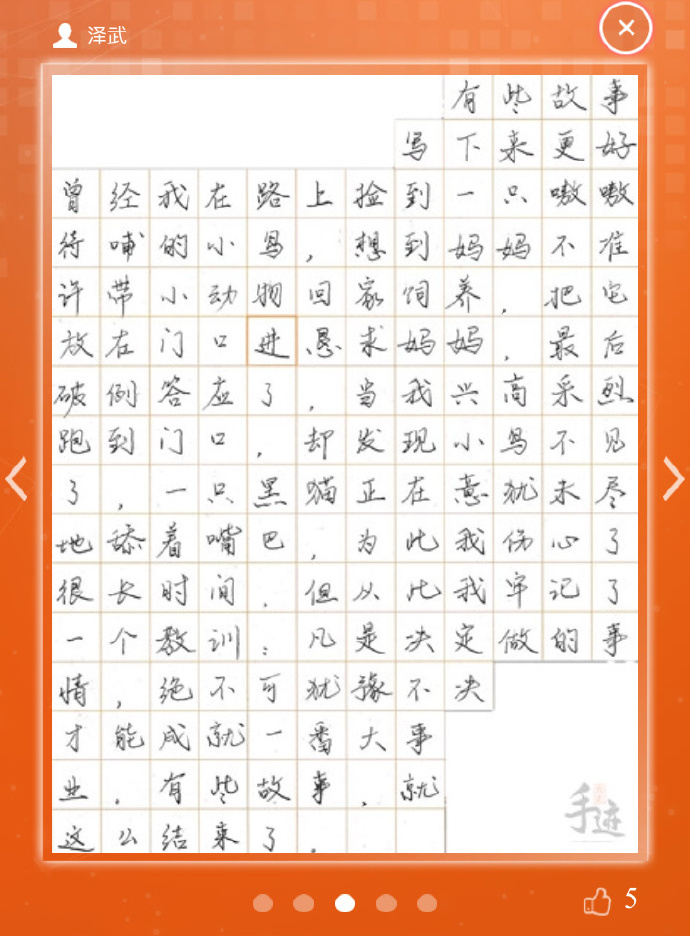 泽武
有些故事
写下来更好
曾经我在路上捡到一只嗷嗷
待哺的小鸟，想到妈妈不准
许带小动物回家饲养，把它
放在门口进恳求妈妈，最后
破例答应了，当我兴高采烈
跑到门口，却发现小鸟不见
了，一只黑猫正在意犹未尽
地舔着嘴巴，为此我伤心了
很长时间．但从此我牢记了
一个教训：凡是决定做的事
情，绝不可犹豫不决
才能成就一番大事
业．有些故事，就
这么结束了．
手迹
5